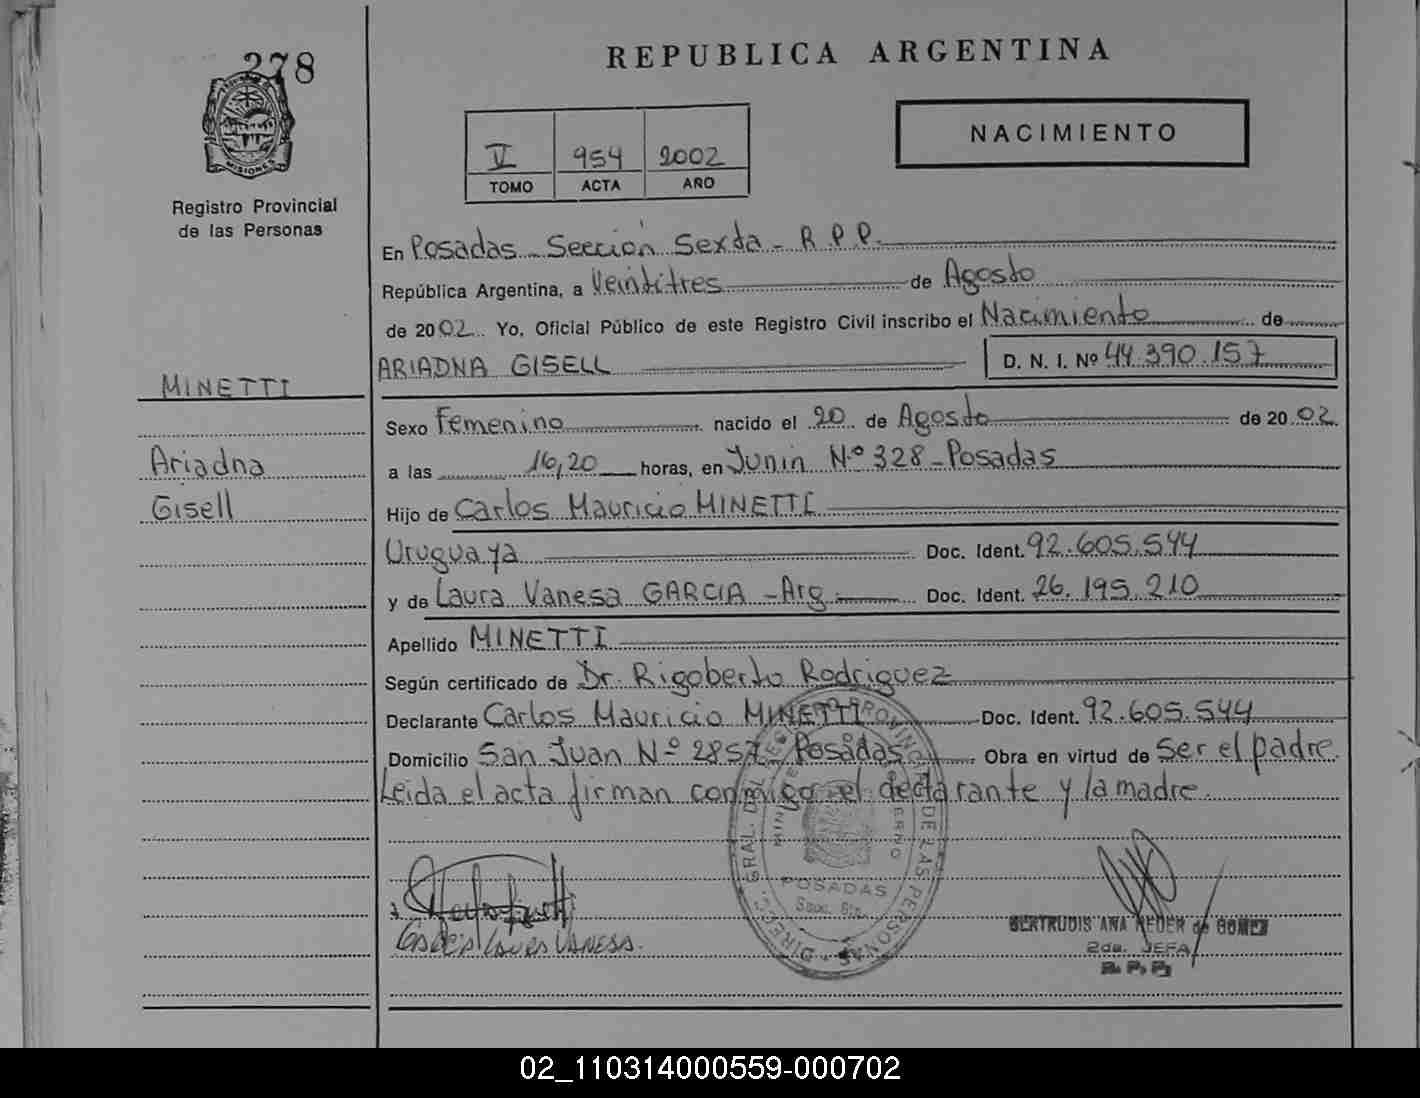 278
REPUBLICA ARGENTINA
NACIMIENTO
V 954 2002
TOMO ACTA AÑO
MISIONES
Registro Provincial
de las Personas
En Posadas - Sección Sexta - R.P.P.
República Argentina, a Veintitres de Agosto
de 2002 Yo, Oficial Público de este Registro Civil inscribo el Nacimiento de
ARIADNA GISELL D. N. I. Nº 44.390.157
MINETTI
Ariadna
Gisell
Sexo Femenino nacido el 20 de Agosto de 2002.
a las 16,20 horas, en Junin Nº 328 - Posadas
Hijo de Carlos Mauricio MINETTI
Uruguaya Doc. Ident. 92.605.544
y de Laura Vanesa GARCIA - Arg. Doc. Ident. 26.195.210
Apellido MINETTI
Según certificado de Dr. Rigoberto Rodriguez
Declarante Carlos Mauricio MINETTI Doc. Ident. 92.605.544
Domicilio San Juan Nº 2857 - Posadas Obra en virtud de Ser el padre.
Leida el acta firman conmigo el declarante y la madre.
POSADAS
LAURA VANESA.
GERTRUDIS ANA REDER de GOMEZ
2da. JEFA
R. P. P.
02_110314000559-000702